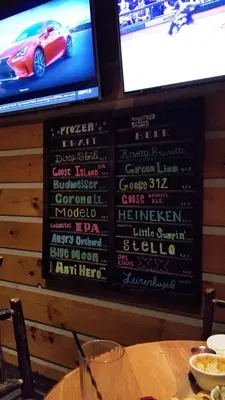 FROZEN
DRAFT
Dirty Blonde
GOOSE ISLAND IPA
Budweiser
Corona Lt.
MODELO
IPA
Angry Orchard
Blue Moon
ANTI HERO
BEER
Knotty Brunette
Green Line
Goose 312
GOOSE
HEINEKEN
Little Sumpin'
STELLA
DOS EQUIS XX
Leinenkugel